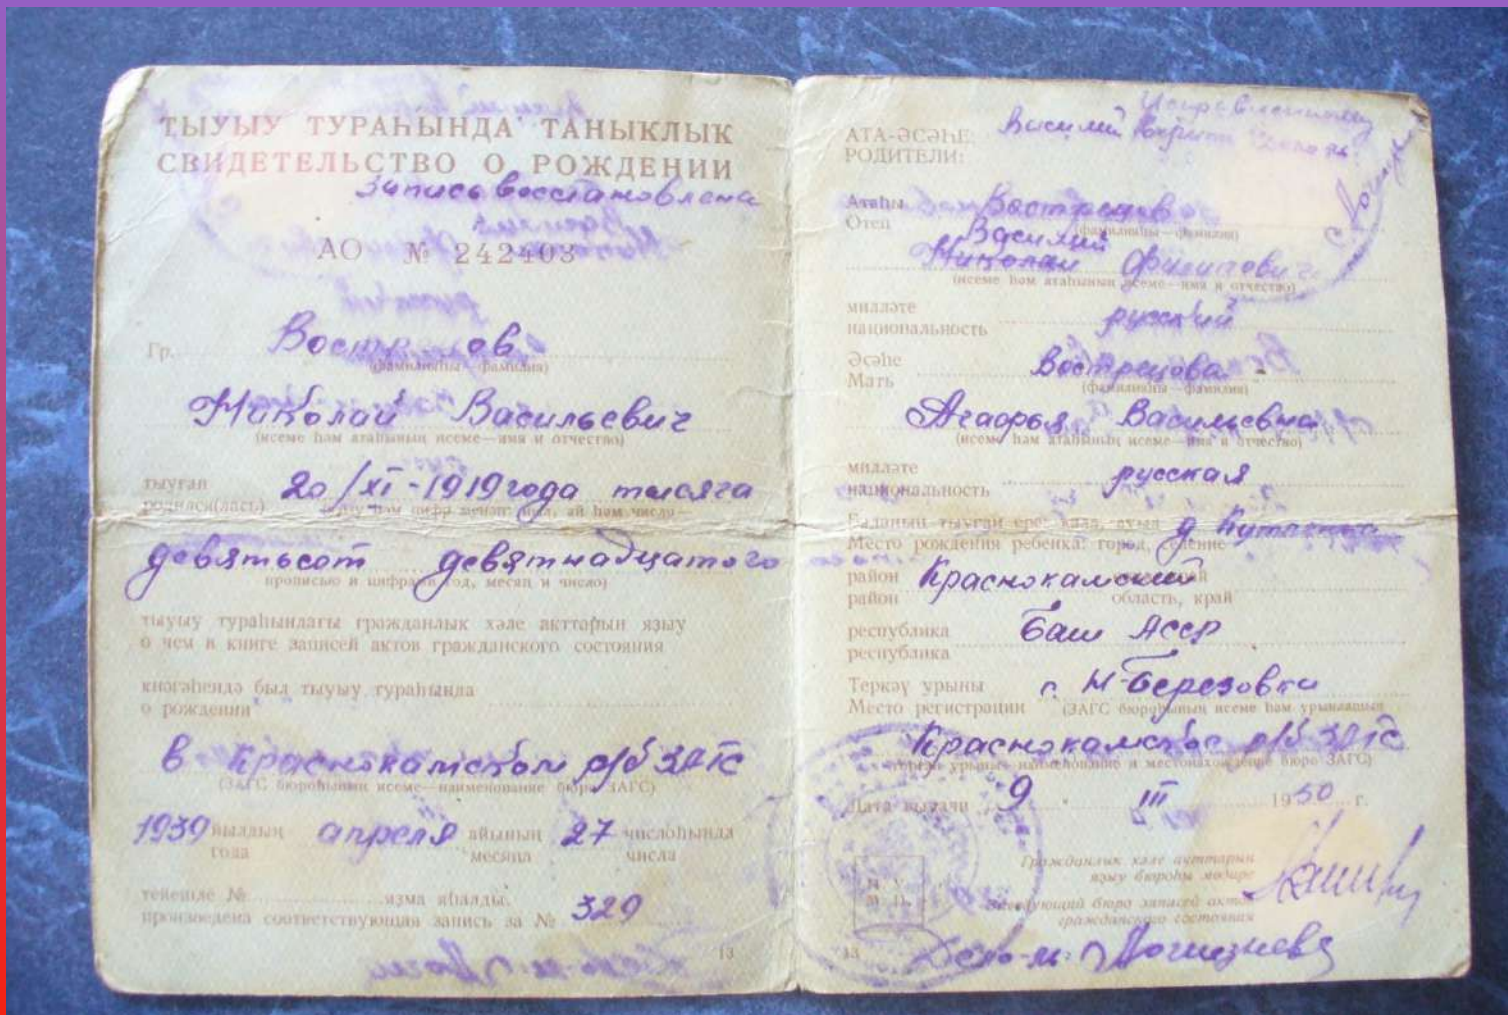 ТЫУЫУ ТУРАҺЫНДА ТАНЫКЛЫК
СВИДЕТЕЛЬСТВО О РОЖДЕНИИ
Запись восстановлена
АО № 242403
Гр. Вострецов
(фамилияһы—фамилия)
Николай Васильевич
(исеме һәм атаһының исеме—имя и отчество)
тыуған
родился(лась) 20/XI-1919 года тысяча
девятьсот девятнадцатого
прописью и цифрами год, месяц и число)
тыуыу тураһындағы граждандык хәле акттарын яҙыу
о чем в книге записей актов гражданского состояния
кнәгәһендә был тыуыу тураһында
о рождении
в Краснокамском р/б ЗАГС
(ЗАГС бюроһының исеме—наименование бюро ЗАГС)
1939 йылдың апреля айының 27 числоһында
года месяца числа
тейешле № яҙма яһалды.
произведена соответствующая запись за № 329
13
АТА-ӘСӘҺЕ:
РОДИТЕЛИ:
Василий
Атаһы
Отец Вострецов
(фамилияһы—фамилия)
Василий
Николай Филипович
(исеме һәм атаһының исеме—имя и отчество)
милләте
национальность русский
Әсәһе
Мать Вострецова
(фамилияһы—фамилия)
Агафья Васильевна
(исеме һәм атаһының исеме—имя и отчество)
милләте
национальность русская
Баланың тыуған ере: кала, ауыл д
Место рождения ребенка: город, селение
район Краснокамский
район область, край
республика Баш АССР
республика
Теркәү урыны с. Н-Березовка
Место регистрации (ЗАГС бюроһының исеме һәм урынлашҡан
Краснокамское р/б ЗАГС
урыны—наименование и местонахождение бюро ЗАГС)
Дата выдачи 9 III 1950 г.
Граждандык хәле акттарын
яҙыу бюроһы мөдире
Заведующий бюро записей актов
гражданского состояния
М. У.
М. П.
13